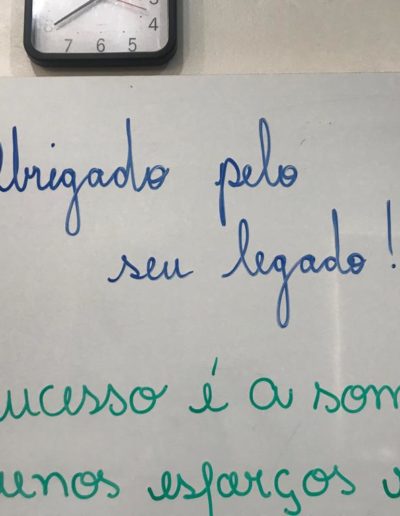 3
8 4
7 6 5
Obrigado pelo
seu legado!
sucesso é a som
uenos esforços